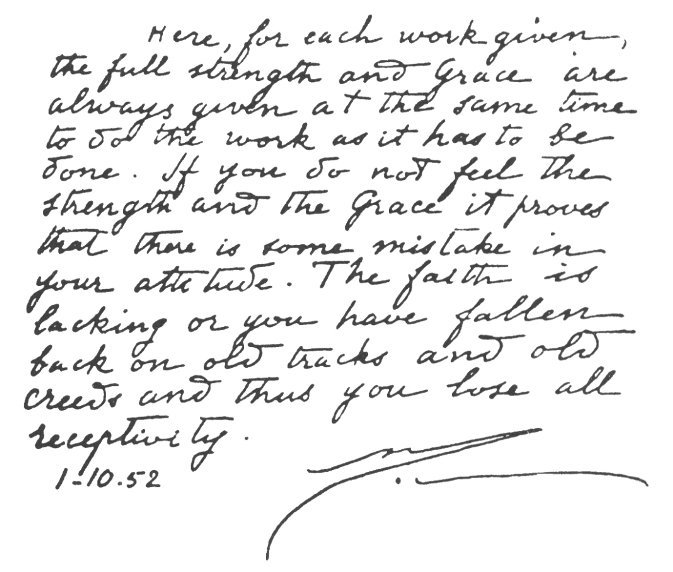 Here, for each work given,
the full strength and Grace are
always given at the same time
to do the work as it has to be
done. If you do not feel the
strength and the Grace it proves
that there is some mistake in
your attitude. The faith is
lacking or you have fallen
back on old tracks and old
creeds and thus you lose all
receptivity.
1-10.52